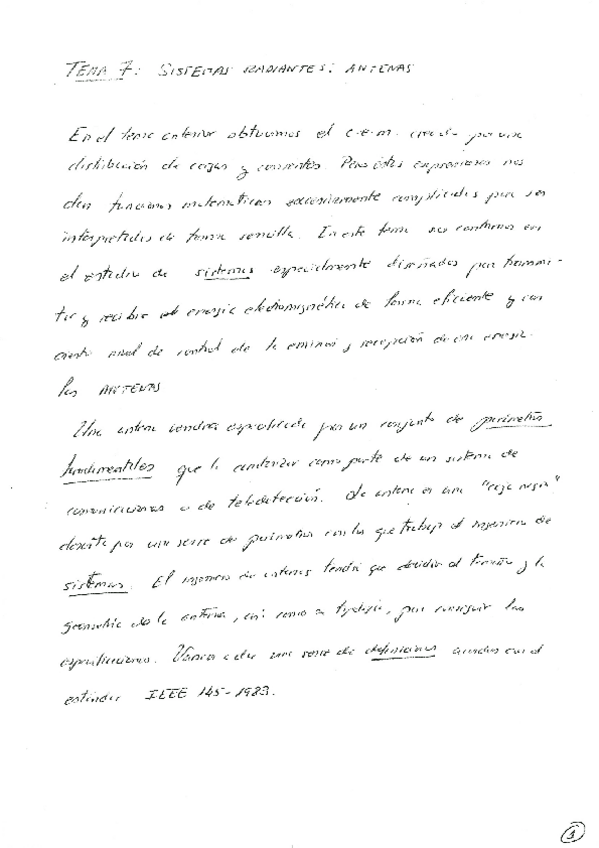 TEMA 7: SISTEMAS RADIANTES: ANTENAS
En el tema anterior obtuvimos el c.e.m. creado por una
distribución de cargas y corrientes. Pero estas expresiones nos
dan funciones matemáticas excesivamente complicadas para ser
interpretadas de forma sencilla. En este tema nos centramos en
el estudio de sistemas especialmente diseñados para transmi-
tir y recibir energía electromagnética de forma eficiente y con
cierto nivel de control de la emisión y recepción de esa energía
las ANTENAS
Una antena vendrá especificada por un conjunto de parámetros
fundamentales que la como parte de un sistema de
comunicaciones o de teledetección. La antena es una "caja negra"
descrita por una serie de parámetros con los que trabaja el ingeniero de
sistemas. El ingeniero de antenas tendrá que decidir el tamaño y la
geometría de la antena, así como su , para conseguir las
especificaciones. Vamos a dar una serie de definiciones acordes con el
estándar IEEE 145-1983.
1